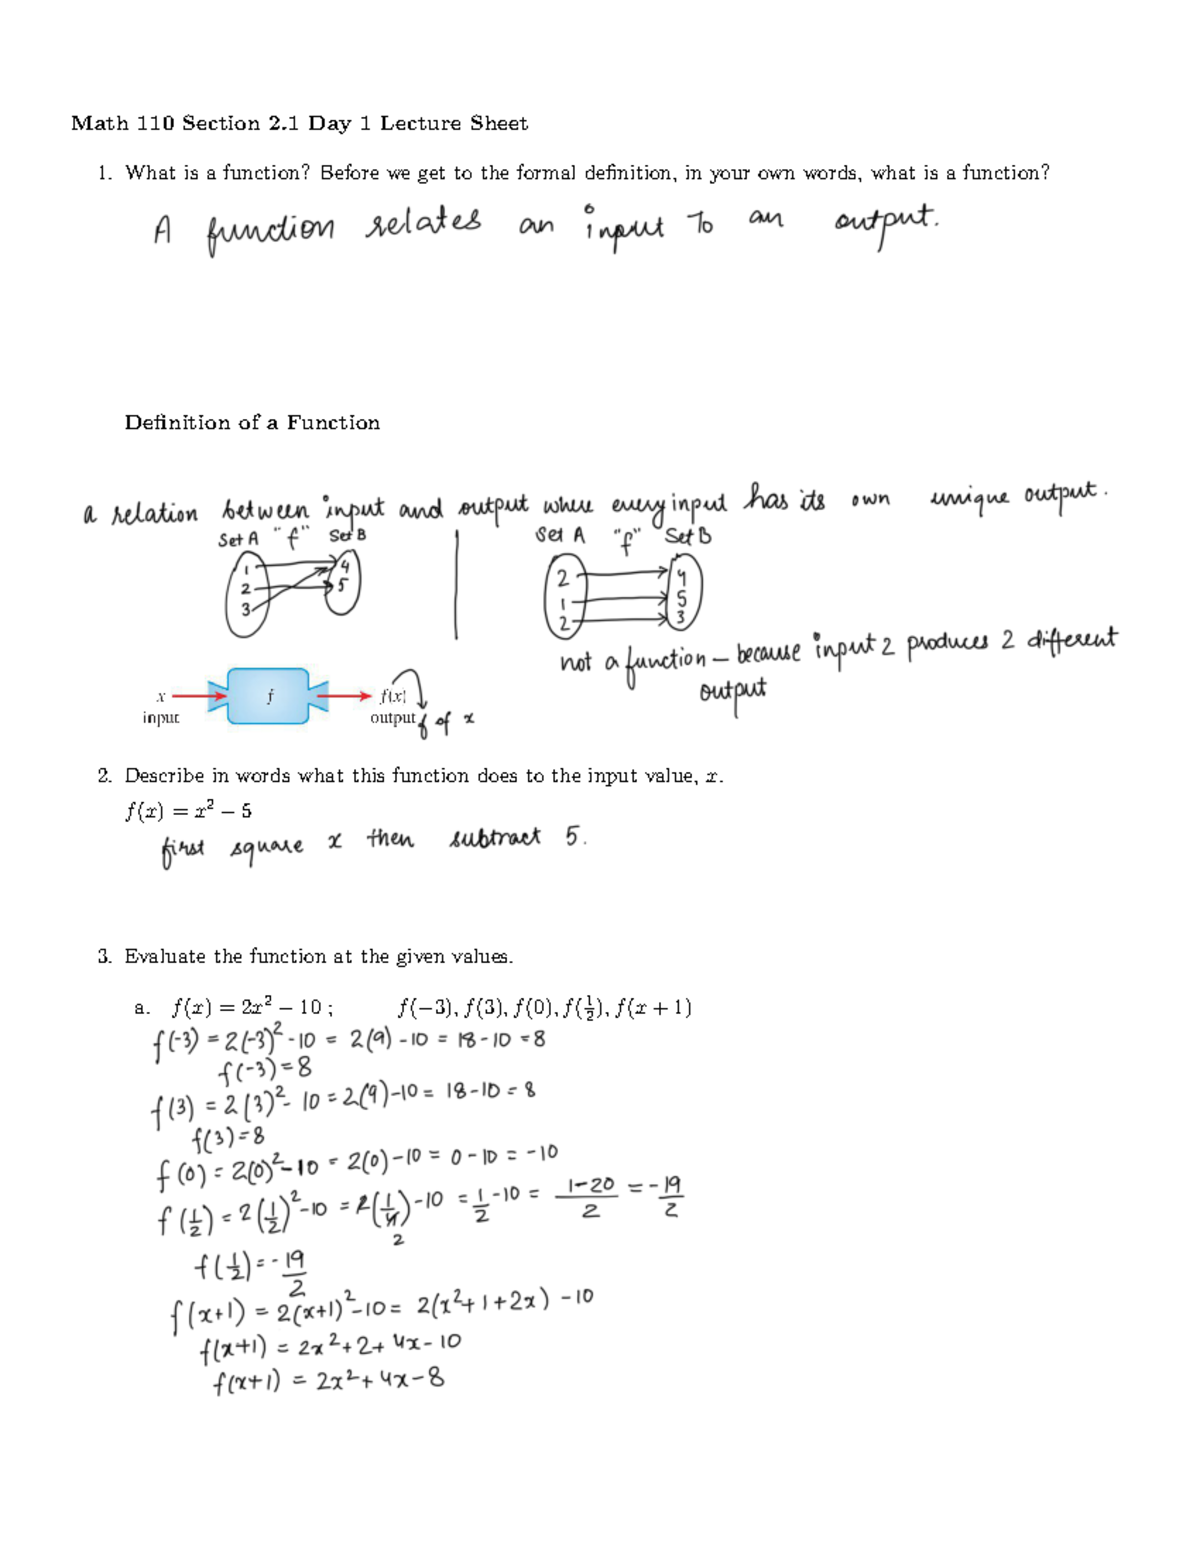 Math 110 Section 2.1 Day 1 Lecture Sheet
1. What is a function? Before we get to the formal definition, in your own words, what is a function?
A function relates an input To an output.
Definition of a Function
a relation between input and output where every input has its own unique output.
Set A "f" Set B
1 4
2 5
3
Set A "f" Set B
2 4
1 5
2 3
not a function – because input 2 produces 2 different
output
x f f(x)
input output f of x
2. Describe in words what this function does to the input value, x.
f(x) = x² – 5
first square x then subtract 5.
3. Evaluate the function at the given values.
a. f(x) = 2x² – 10 ; f(−3), f(3), f(0), f(½), f(x + 1)
f(-3) = 2(-3)² - 10 = 2(9) - 10 = 18 - 10 = 8
f(-3) = 8
f(3) = 2(3)² - 10 = 2(9) - 10 = 18 - 10 = 8
f(3) = 8
f(0) = 2(0)² - 10 = 2(0) - 10 = 0 - 10 = -10
f(1/2) = 2(1/2)² - 10 = 2(1/4) - 10 = 1/2 - 10 = (1-20)/2 = -19/2
2
f(1/2) = -19/2
f(x+1) = 2(x+1)² - 10 = 2(x² + 1 + 2x) - 10
f(x+1) = 2x² + 2 + 4x - 10
f(x+1) = 2x² + 4x - 8